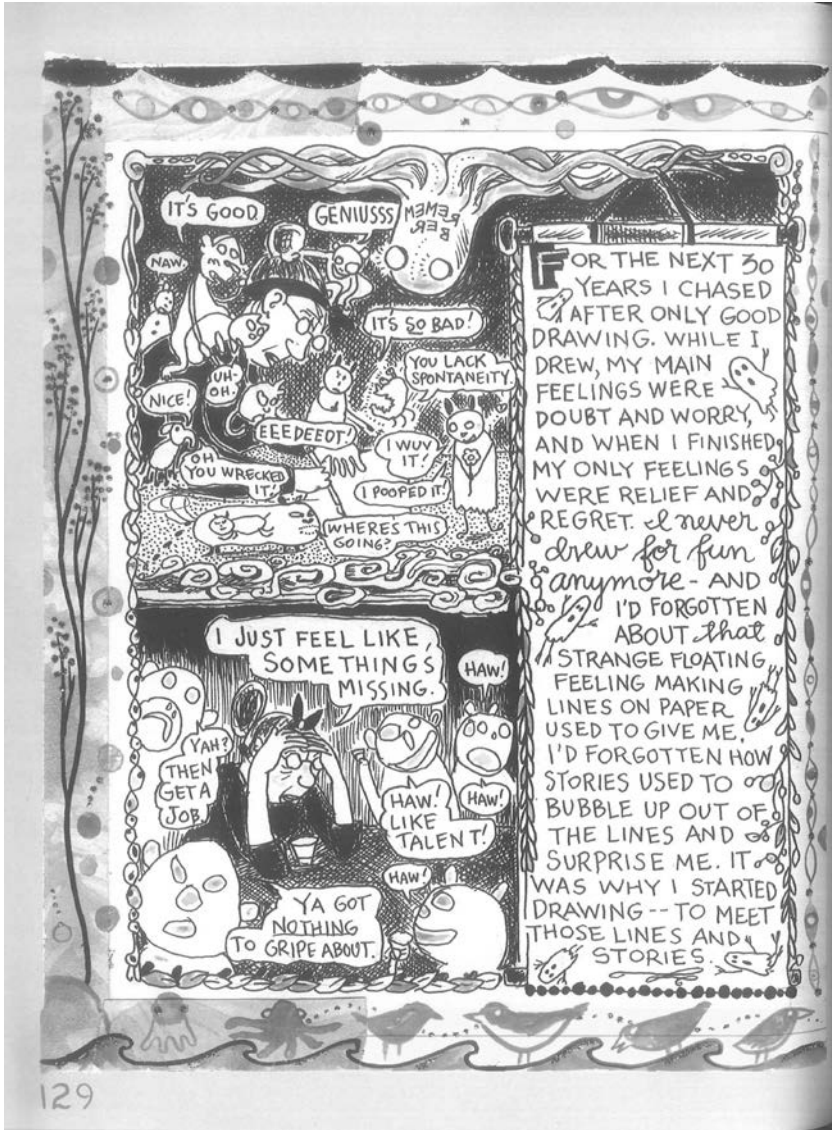 IT'S GOOD.
GENIUSSS
REMEM
BER
NAW.
IT'S SO BAD!
YOU LACK
SPONTANEITY.
UH-
OH.
NICE!
EEEDEEOT!
I WUV
IT!
OH
YOU WRECKED
IT!
I POOPED IT!
WHERE'S THIS
GOING?
I JUST FEEL LIKE
SOMETHING'S
MISSING.
HAW!
YAH?
THEN
GET A
JOB.
HAW!
LIKE
TALENT!
HAW!
HAW!
YA GOT
NOTHING
TO GRIPE ABOUT.
FOR THE NEXT 30
YEARS I CHASED
AFTER ONLY GOOD
DRAWING. WHILE I
DREW, MY MAIN
FEELINGS WERE
DOUBT AND WORRY,
AND WHEN I FINISHED,
MY ONLY FEELINGS
WERE RELIEF AND
REGRET. I never
drew for fun
anymore - AND
I'D FORGOTTEN
ABOUT that
STRANGE FLOATING
FEELING MAKING
LINES ON PAPER
USED TO GIVE ME.
I'D FORGOTTEN HOW
STORIES USED TO
BUBBLE UP OUT OF
THE LINES AND
SURPRISE ME. IT
WAS WHY I STARTED
DRAWING -- TO MEET
THOSE LINES AND
STORIES.
129